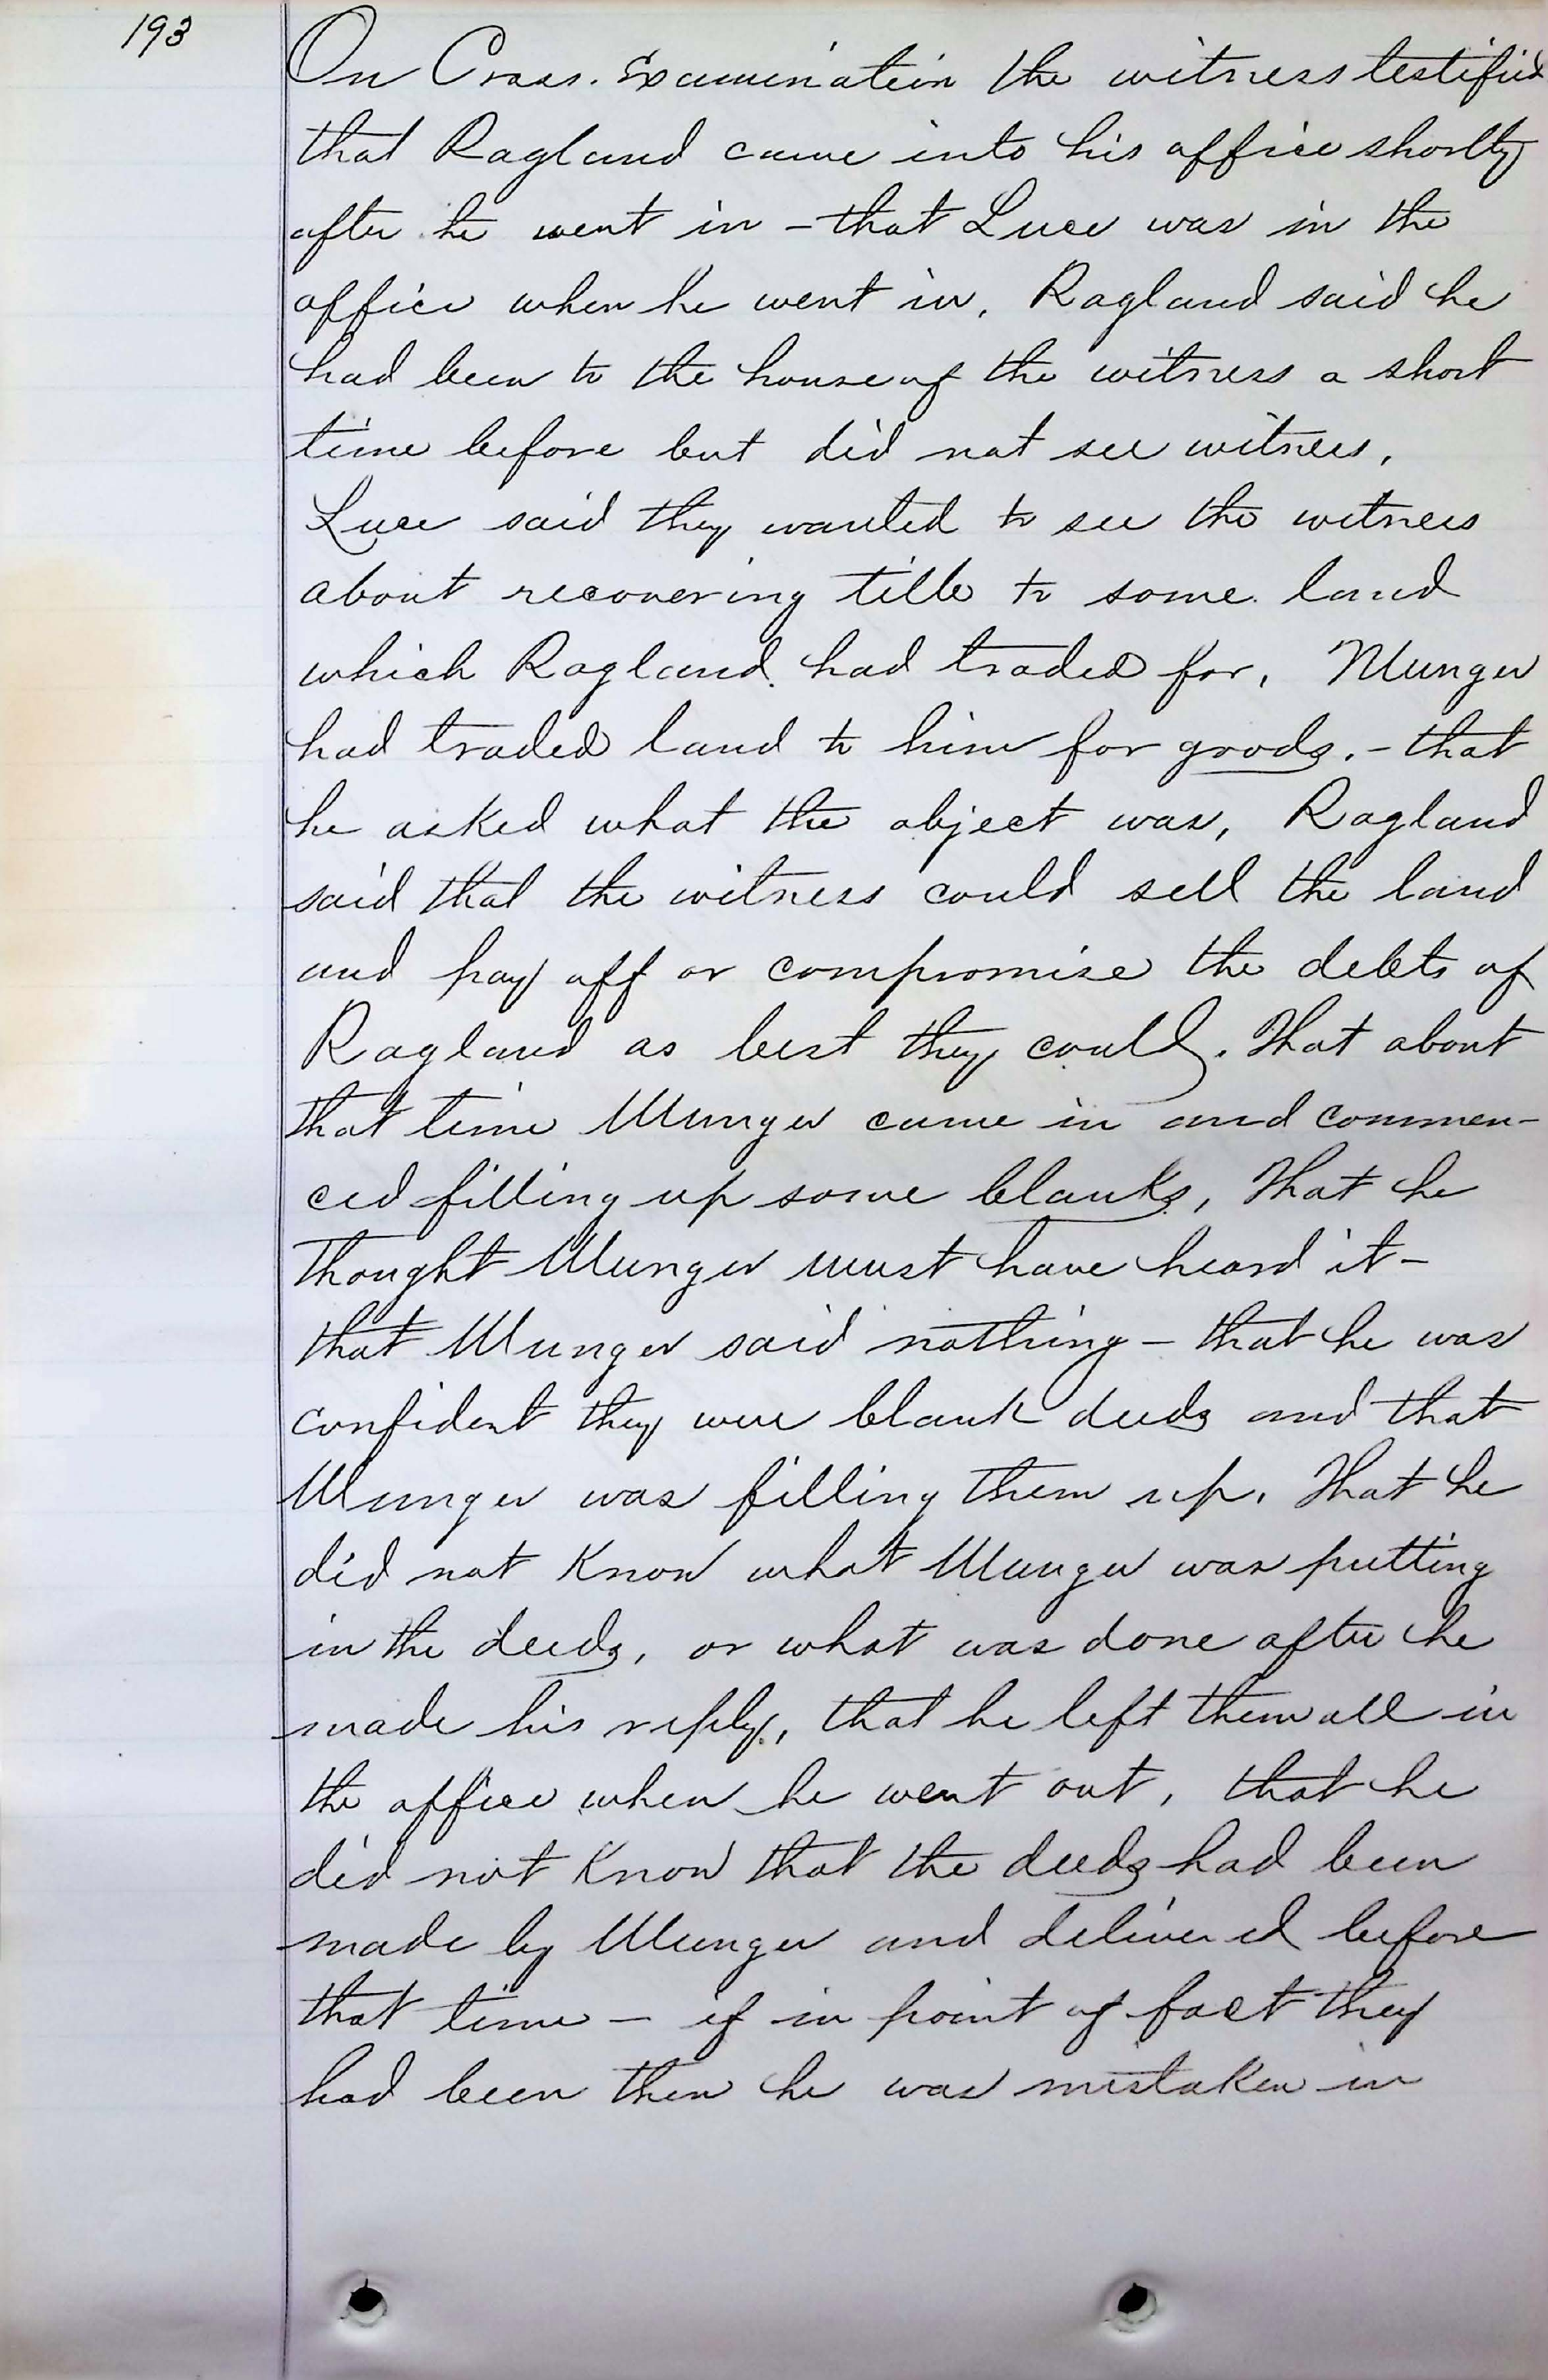 193
On Cross. Examination the witness testified
that Ragland came into his office shortly
after he went in - that Luce was in the
office when he went in, Ragland said he
had been to the house of the witness a short
time before but did not see witness,
Luce said they wanted to see the witness
about recovering title to some land
which Ragland had traded for, Munger
had traded land to him for goods. - that
he asked what the object was, Ragland
said that the witness could sell the land
and pay off or compromise the debts of
Ragland as best they could. That about
that time Munger came in and commen-
ced filling up some blanks, That he
thought Munger must have heard it -
that Munger said nothing - that he was
confident they were blank deeds and that
Munger was filling them up. That he
did not know what Munger was putting
in the deeds, or what was done after he
made his reply, that he left them all in
the office when he went out, that he
did not know that the deeds had been
made by Munger and delivered before
that time - if in point of fact they
had been then he was mistaken in